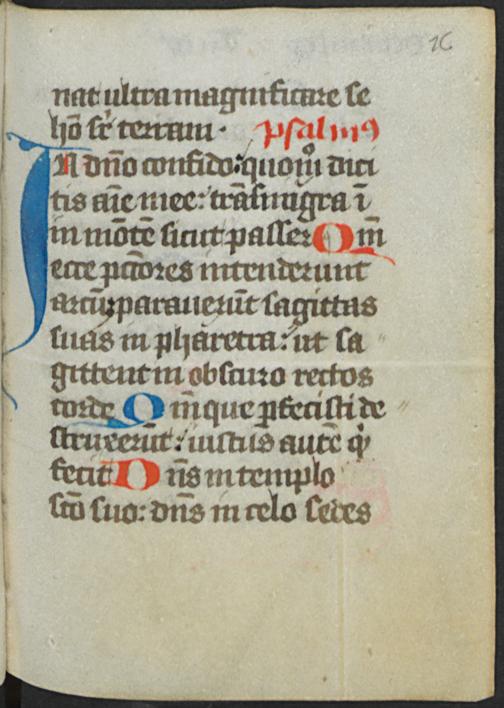 16
nat ultra magnificare se
hō sr̄ terram· psalmꝰ
In dn̄o confido: quom̊ dici
tis aīe mee: trāsmigra ī
in mōte sicut passer Qm̄
ecce pctōres intenderunt
arcū: parauerūt sagittas
suas in pharetra: ut sa
gittent in obscuro rectos
corde Qm̄ que ꝑfecisti de
struxerūt: iustus autē qͥ
fecit Dn̄s in templo
scō suo: dn̄s in celo sedes